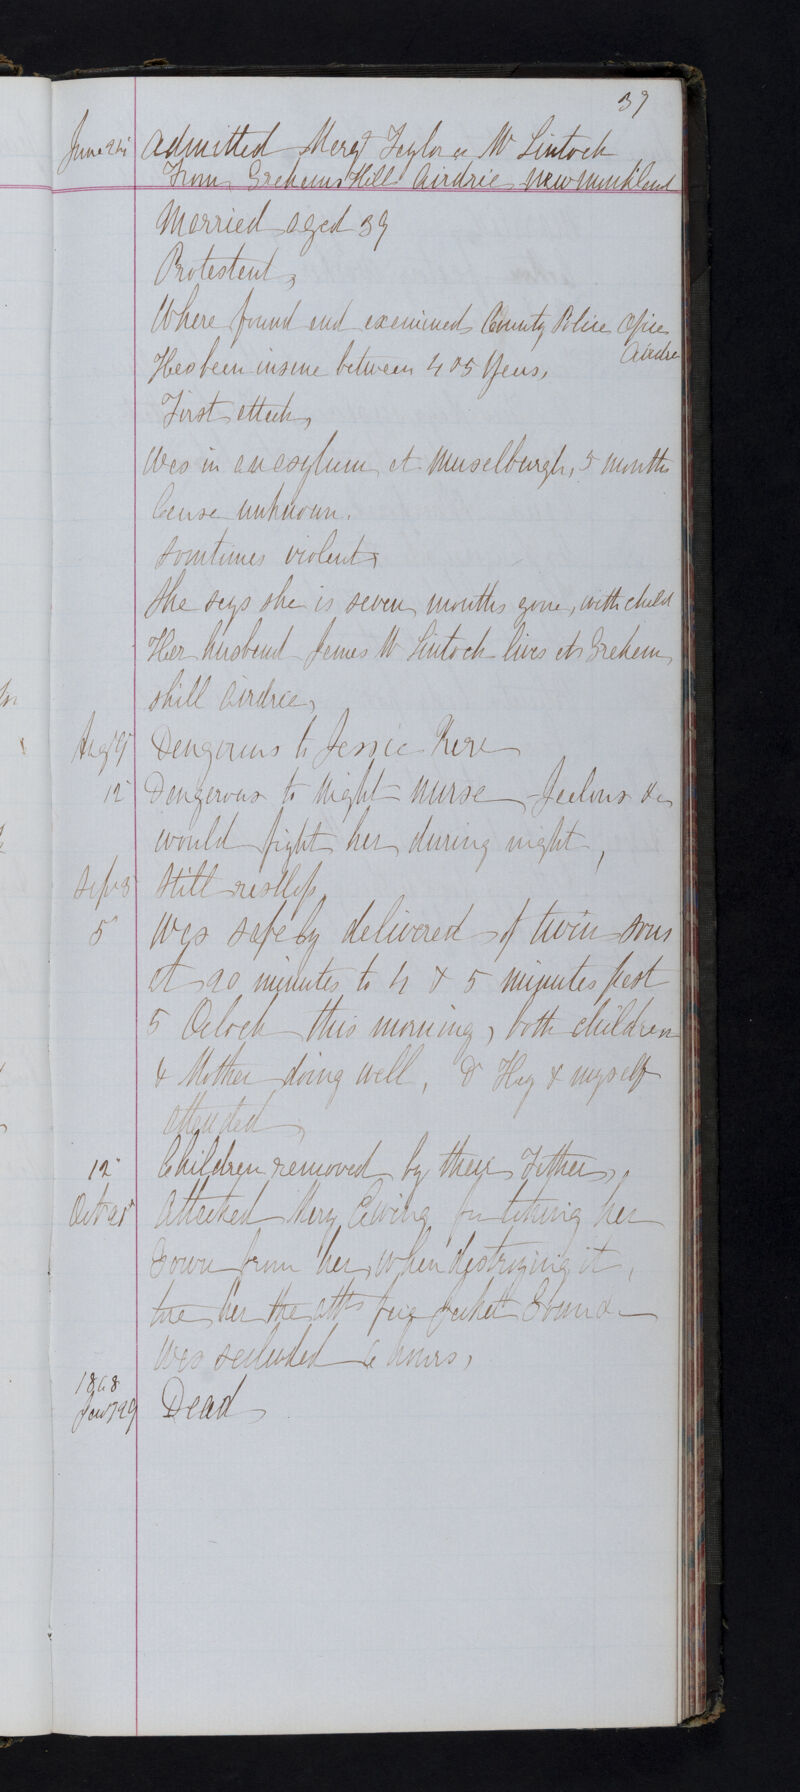 39
June 24 Admitted Margt Taylor or Mc Lintock
From Grahams Hill Airdrie New Monkland
Married aged 39
Protestant,
Where found and examined County Police Office
Airdrie
Has been insane between 4 or 5 Years,
First attack,
Was in an asylum at Muselburgh, 5 months
Cause unknown.
Somtimes violent,
She says she is seven months gone, with child
Her husband James Mc Lintock lives at Graham
shill Airdrie,
Augt 9 Dangerous to Jessie Kerr
12 Dangerous to Night nurse Jealous &
would fight her during night,
Sepr 3 Still restless
5 Was safely delivered of twin sons
at 20 minutes to 4 & 5 minutes past
5 Oclock this morning, both children
& Mother doing well, Dr Hay & myself
attended,
12 Children removed by their Father,
Octr 21st Attacked Mary Ewing for taking her
Gown from her, when destroying it,
tore her the Gown &
Was secluded 6 hours,
1868
Jany 29 Dead